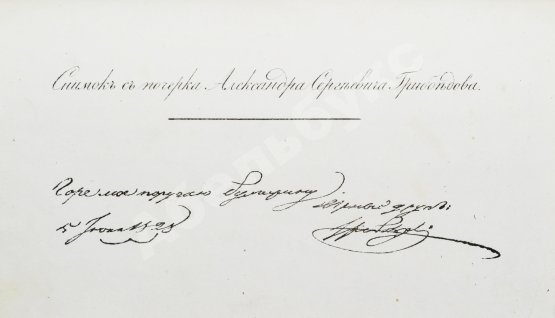 Снимокъ съ почерка Александра Сергѣевича Грибоѣдова.
Горе мое поручаю Булгарину. Верный другъ
5 Іюня 1828 Грибоѣдовъ